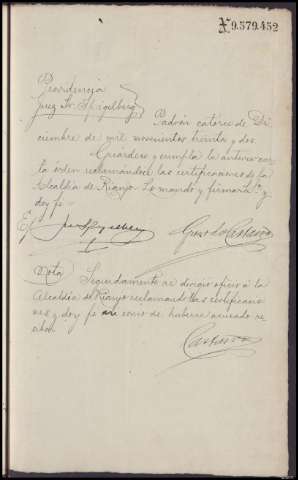 9.579.452
Providencia
Juez Sr. Spigelberg
Padrón catorce de Di
ciembre de mil novecientos treinta y dos
Guárdese y cumpla la anterior car
ta órden reclamándose las certificaciones de la
Alcaldía de Rianjo. Lo mandó y firma S.Sª y
doy fe =
Nota Seguidamente se dirigió oficio á la
Alcaldía de Rianjo reclamando las certificacio
nes y doy fe así como de haberse acusado re
cibo.
Castro